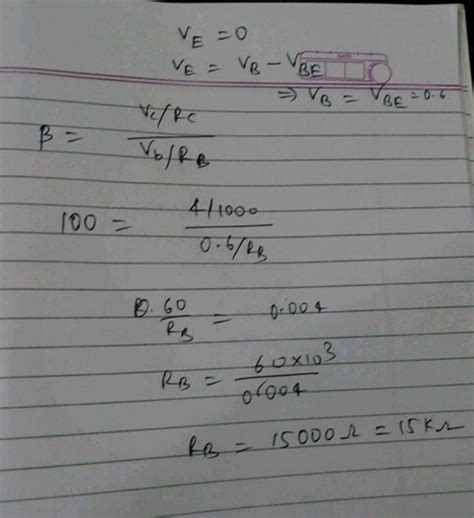 V_E = 0
V_E = V_B - V_BE
⇒ V_B = V_BE = 0.6
β = (Vc/Rc)/(V_b/R_B)
100 = (4/1000)/(0.6/R_B)
0.60/R_B = 0.004
R_B = 60×10^3/0004
R_B = 15000Ω = 15KΩ